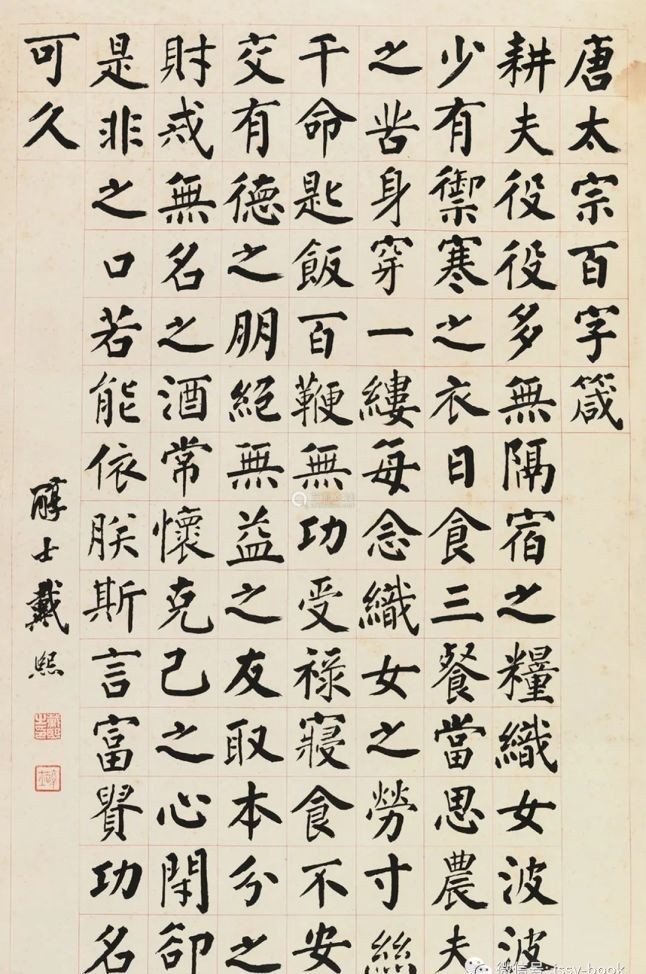 唐太宗百字箴
耕夫役役多無隔宿之糧織女波波
少有禦寒之衣日食三餐當思農夫
之苦身穿一縷每念織女之勞寸絲
千命匙飯百鞭無功受禄寢食不安
交有德之朋絕無益之友取本分之
財戒無名之酒常懷克己之心閉卻
是非之口若能依朕斯言富貴功名
可久
醇士戴熙
微信号: jssy-book